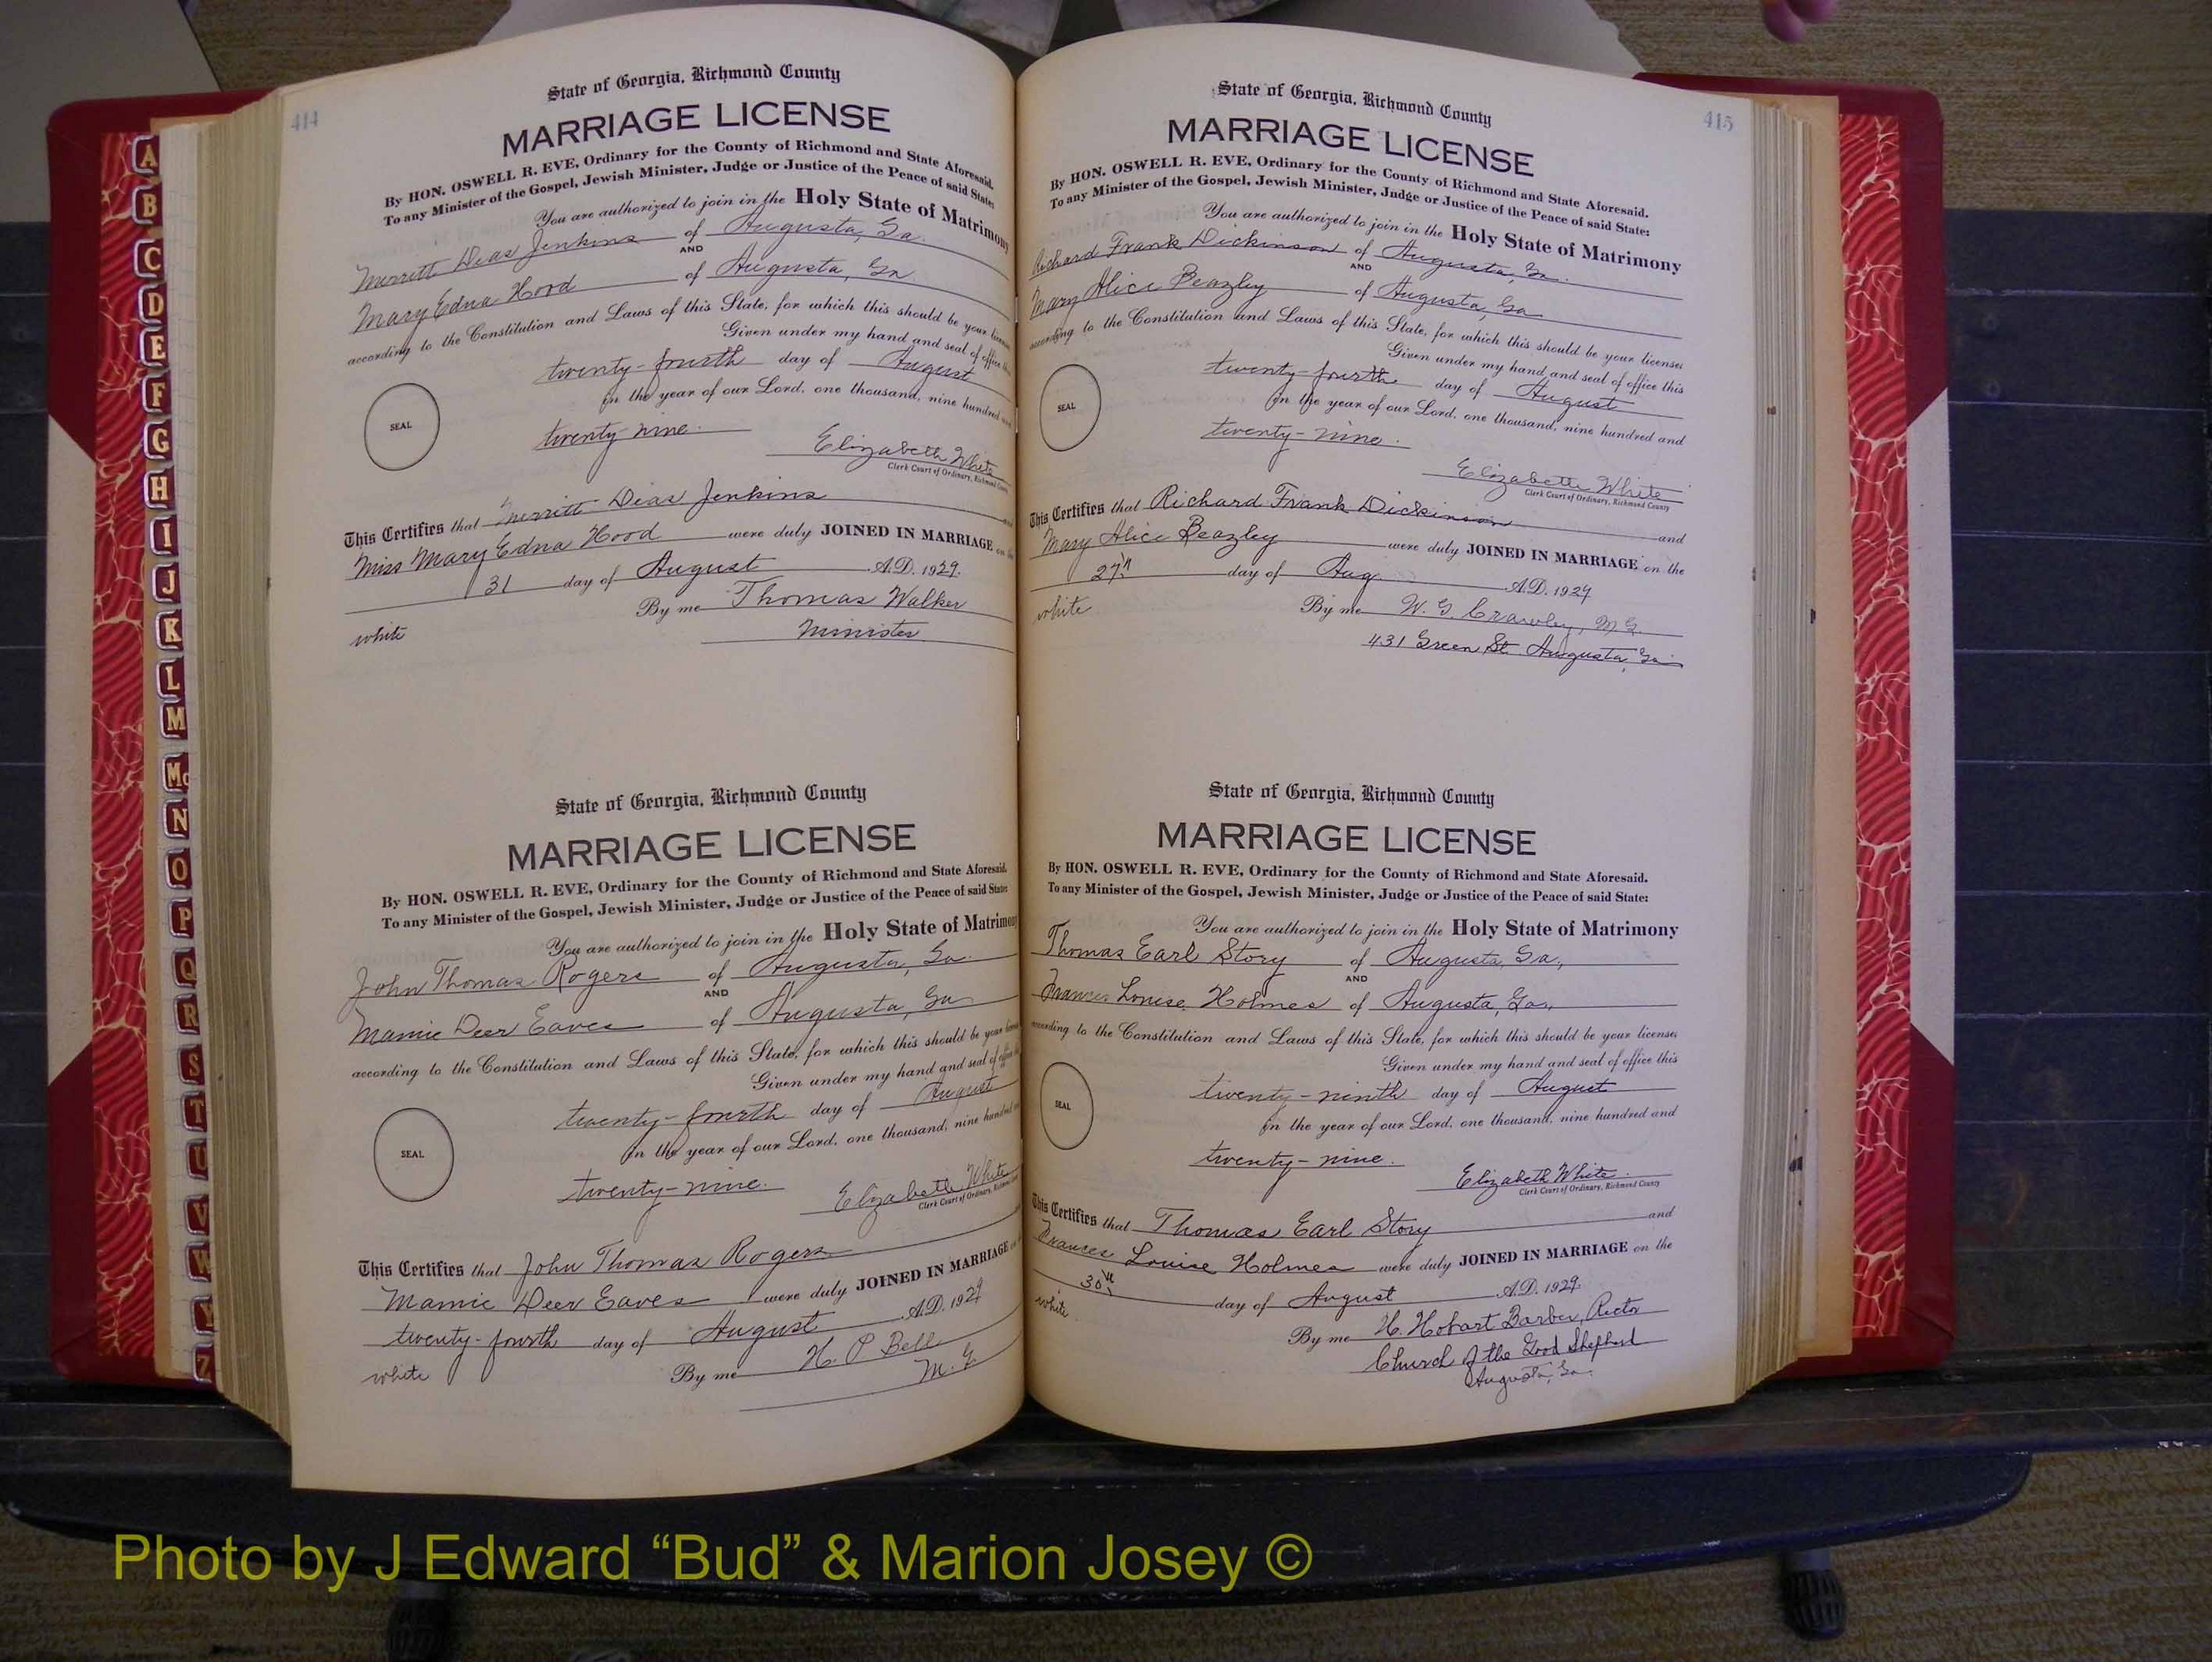 414
State of Georgia, Richmond County
MARRIAGE LICENSE
By HON. OSWELL R. EVE, Ordinary for the County of Richmond and State Aforesaid.
To any Minister of the Gospel, Jewish Minister, Judge or Justice of the Peace of said State:
You are authorized to join in the Holy State of Matrimony
Merritt Dias Jenkins of Augusta, Ga.
AND
Mary Edna Hood of Augusta, Ga.
according to the Constitution and Laws of this State, for which this should be your
Given under my hand and seal of office
twenty-fourth day of August
in the year of our Lord, one thousand, nine hundred
SEAL
twenty nine.
Elizabeth White
Clerk Court of Ordinary, Richmond County
This Certifies that Merritt Dias Jenkins
Miss Mary Edna Hood were duly JOINED IN MARRIAGE on
31 day of August A.D. 1929.
By me Thomas Walker
white Minister
State of Georgia, Richmond County
MARRIAGE LICENSE
By HON. OSWELL R. EVE, Ordinary for the County of Richmond and State Aforesaid.
To any Minister of the Gospel, Jewish Minister, Judge or Justice of the Peace of said State:
You are authorized to join in the Holy State of Matrimony
John Thomas Rogers of Augusta, Ga.
AND
Mamie Deer Eaves of Augusta, Ga
according to the Constitution and Laws of this State, for which this should be your
Given under my hand and seal of
twenty-fourth day of August
in the year of our Lord, one thousand, nine hundred
SEAL
twenty-nine.
Elizabeth White
Clerk Court of Ordinary, Richmond
This Certifies that John Thomas Rogers
Mamie Deer Eaves were duly JOINED IN MARRIAGE
twenty-fourth day of August A.D. 1929
white By me H. P Bell
M. G
415
State of Georgia, Richmond County
MARRIAGE LICENSE
By HON. OSWELL R. EVE, Ordinary for the County of Richmond and State Aforesaid.
To any Minister of the Gospel, Jewish Minister, Judge or Justice of the Peace of said State:
You are authorized to join in the Holy State of Matrimony
Richard Frank Dickinson of Augusta, Ga.
AND
Mary Alice Beazley of Augusta, Ga
according to the Constitution and Laws of this State, for which this should be your license;
Given under my hand and seal of office this
twenty-fourth day of August
in the year of our Lord, one thousand, nine hundred and
SEAL
twenty-nine.
Elizabeth White
Clerk Court of Ordinary, Richmond County
This Certifies that Richard Frank Dickinson and
Mary Alice Beazley were duly JOINED IN MARRIAGE on the
27th day of Aug. A.D. 1929
white By me W. G. Crawley, M G.
431 Green St. Augusta, Ga
State of Georgia, Richmond County
MARRIAGE LICENSE
By HON. OSWELL R. EVE, Ordinary for the County of Richmond and State Aforesaid.
To any Minister of the Gospel, Jewish Minister, Judge or Justice of the Peace of said State:
You are authorized to join in the Holy State of Matrimony
Thomas Earl Story of Augusta, Ga.,
AND
Frances Louise Holmes of Augusta, Ga.,
according to the Constitution and Laws of this State, for which this should be your license;
Given under my hand and seal of office this
twenty-ninth day of August
in the year of our Lord, one thousand, nine hundred and
SEAL
twenty-nine.
Elizabeth White
Clerk Court of Ordinary, Richmond County
This Certifies that Thomas Earl Story and
Frances Louise Holmes were duly JOINED IN MARRIAGE on the
30th day of August A.D. 1929.
white By me H. Hobart Barber, Rector
Church of the Good Shepherd
Augusta, Ga.
A
B
C
D
E
F
G
H
I
J
K
L
M
Mc
N
O
P
Q
R
S
T
U
V
W
Y
Z
Photo by J Edward “Bud” & Marion Josey ©